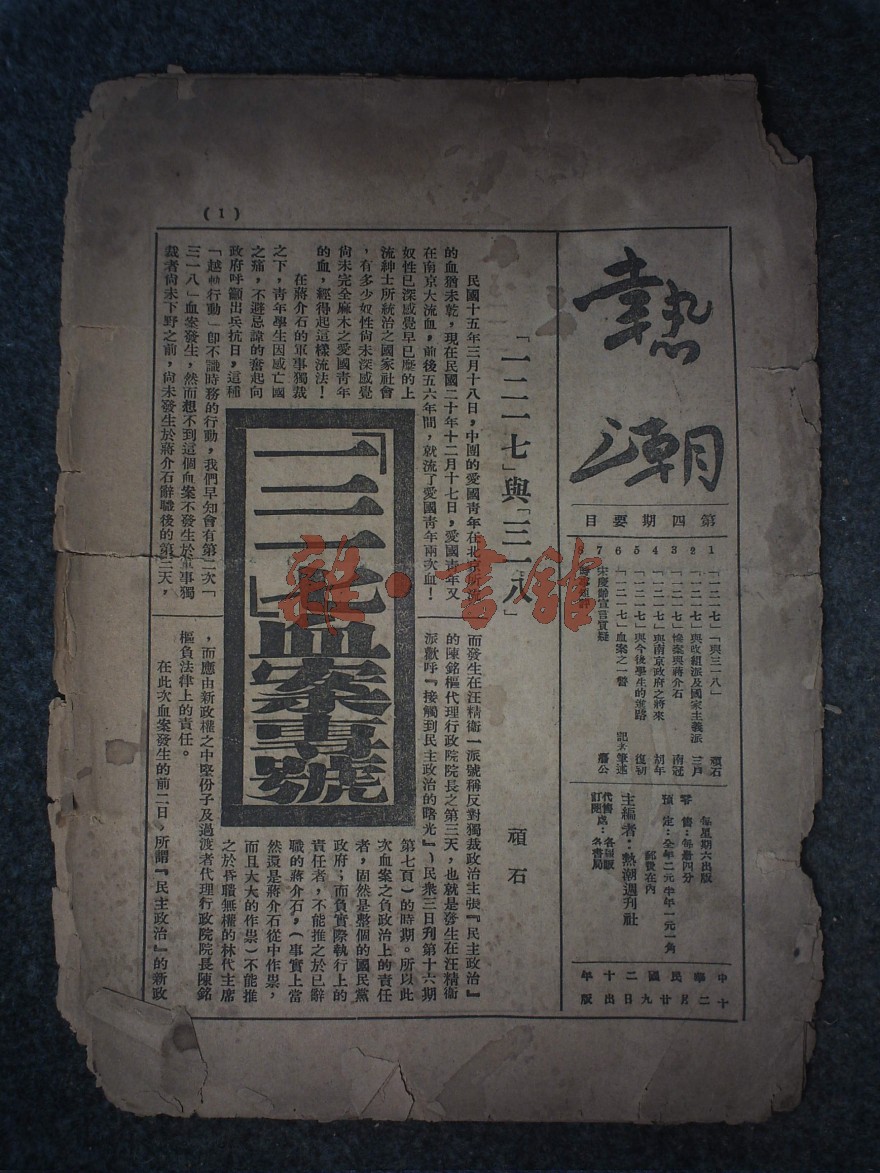 熱潮
第四期要目
1 「一二一七」「與三一八」 頑石
2 「一二一七」與改組派及國家主義派 三戶
3 「一二一七」慘案與蔣介石 南冠
4 「一二一七」與南京政府之將來 胡年
5 「一二一七」與今後學生的道路 復初
6 「一二一七」血案之一瞥 記者筆述
7 宋慶齡宣言質疑 藩公
8
每星期六出版
零售：每册四分
預定：全年二元半年一元一角
郵費在內
主編者：熱潮週刊社
代售處：各書局
訂閱
中華民國二十年
十二月廿九日出版
(1)
「一二一七」與「三一八」
頑石
民國十五年三月十八日，中國的愛國青年在北京所流
的血猶未乾，現在民國二十年十二月十七日，愛國青年又
在南京大流血，前後五六年間，就流了愛國青年兩次血！
奴性已深感覺早已麻的上
流紳士所統治之國家社會
，有多少奴性尚未深感覺
尚未完全麻木之愛國青年
的血，經得起這樣流法！
在蔣介石的軍事獨裁
之下，青年學生因感亡國
之痛，不避忌諱的奮起向
政府呼籲出兵抗日，這種
「越軌行動」即不識時務的行動，我們早知會有第二次「
三一八」血案發生，然而想不到這個血案不發生於軍事獨
裁者尚未下野之前，尚未發生於蔣介石辭職後的第三天，
「一二一七」血案專號
而發生在汪精衛一派號稱反對獨裁政治主張『民主政治』
的陳銘樞代理行政院院長之第三天，也就是發生在汪精衛
派歡呼『接觸到民主政治的曙光』（民衆三日刊第十六期
第七頁）的時期。所以此
次血案之負政治上的責任
者，固然是整個的國民黨
政府；而負實際執行上的
責任者，不能推之於已辭
職的蔣介石，（事實上當
然還是蔣介石從中作祟，
而且大大的作祟）不能推
之於昏職無權的林代主席
，而應由新政權之中堅份子及過渡者代理行政院院長陳銘
樞負法律上的責任。
在此次血案發生的前二日，所謂『民主政治』的新政
雜·書館